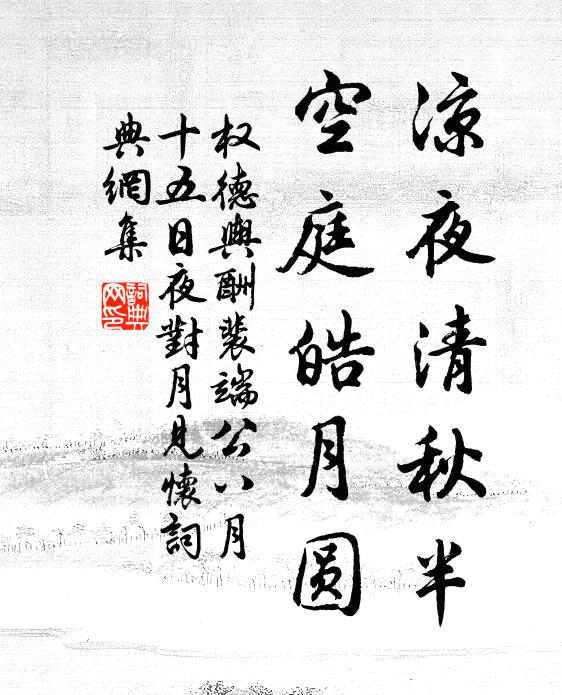 凉夜清秋半
空庭皓月圆
权德輿酬裴端公八月
十五日夜對月見懷詞
典網集
詞典
网印